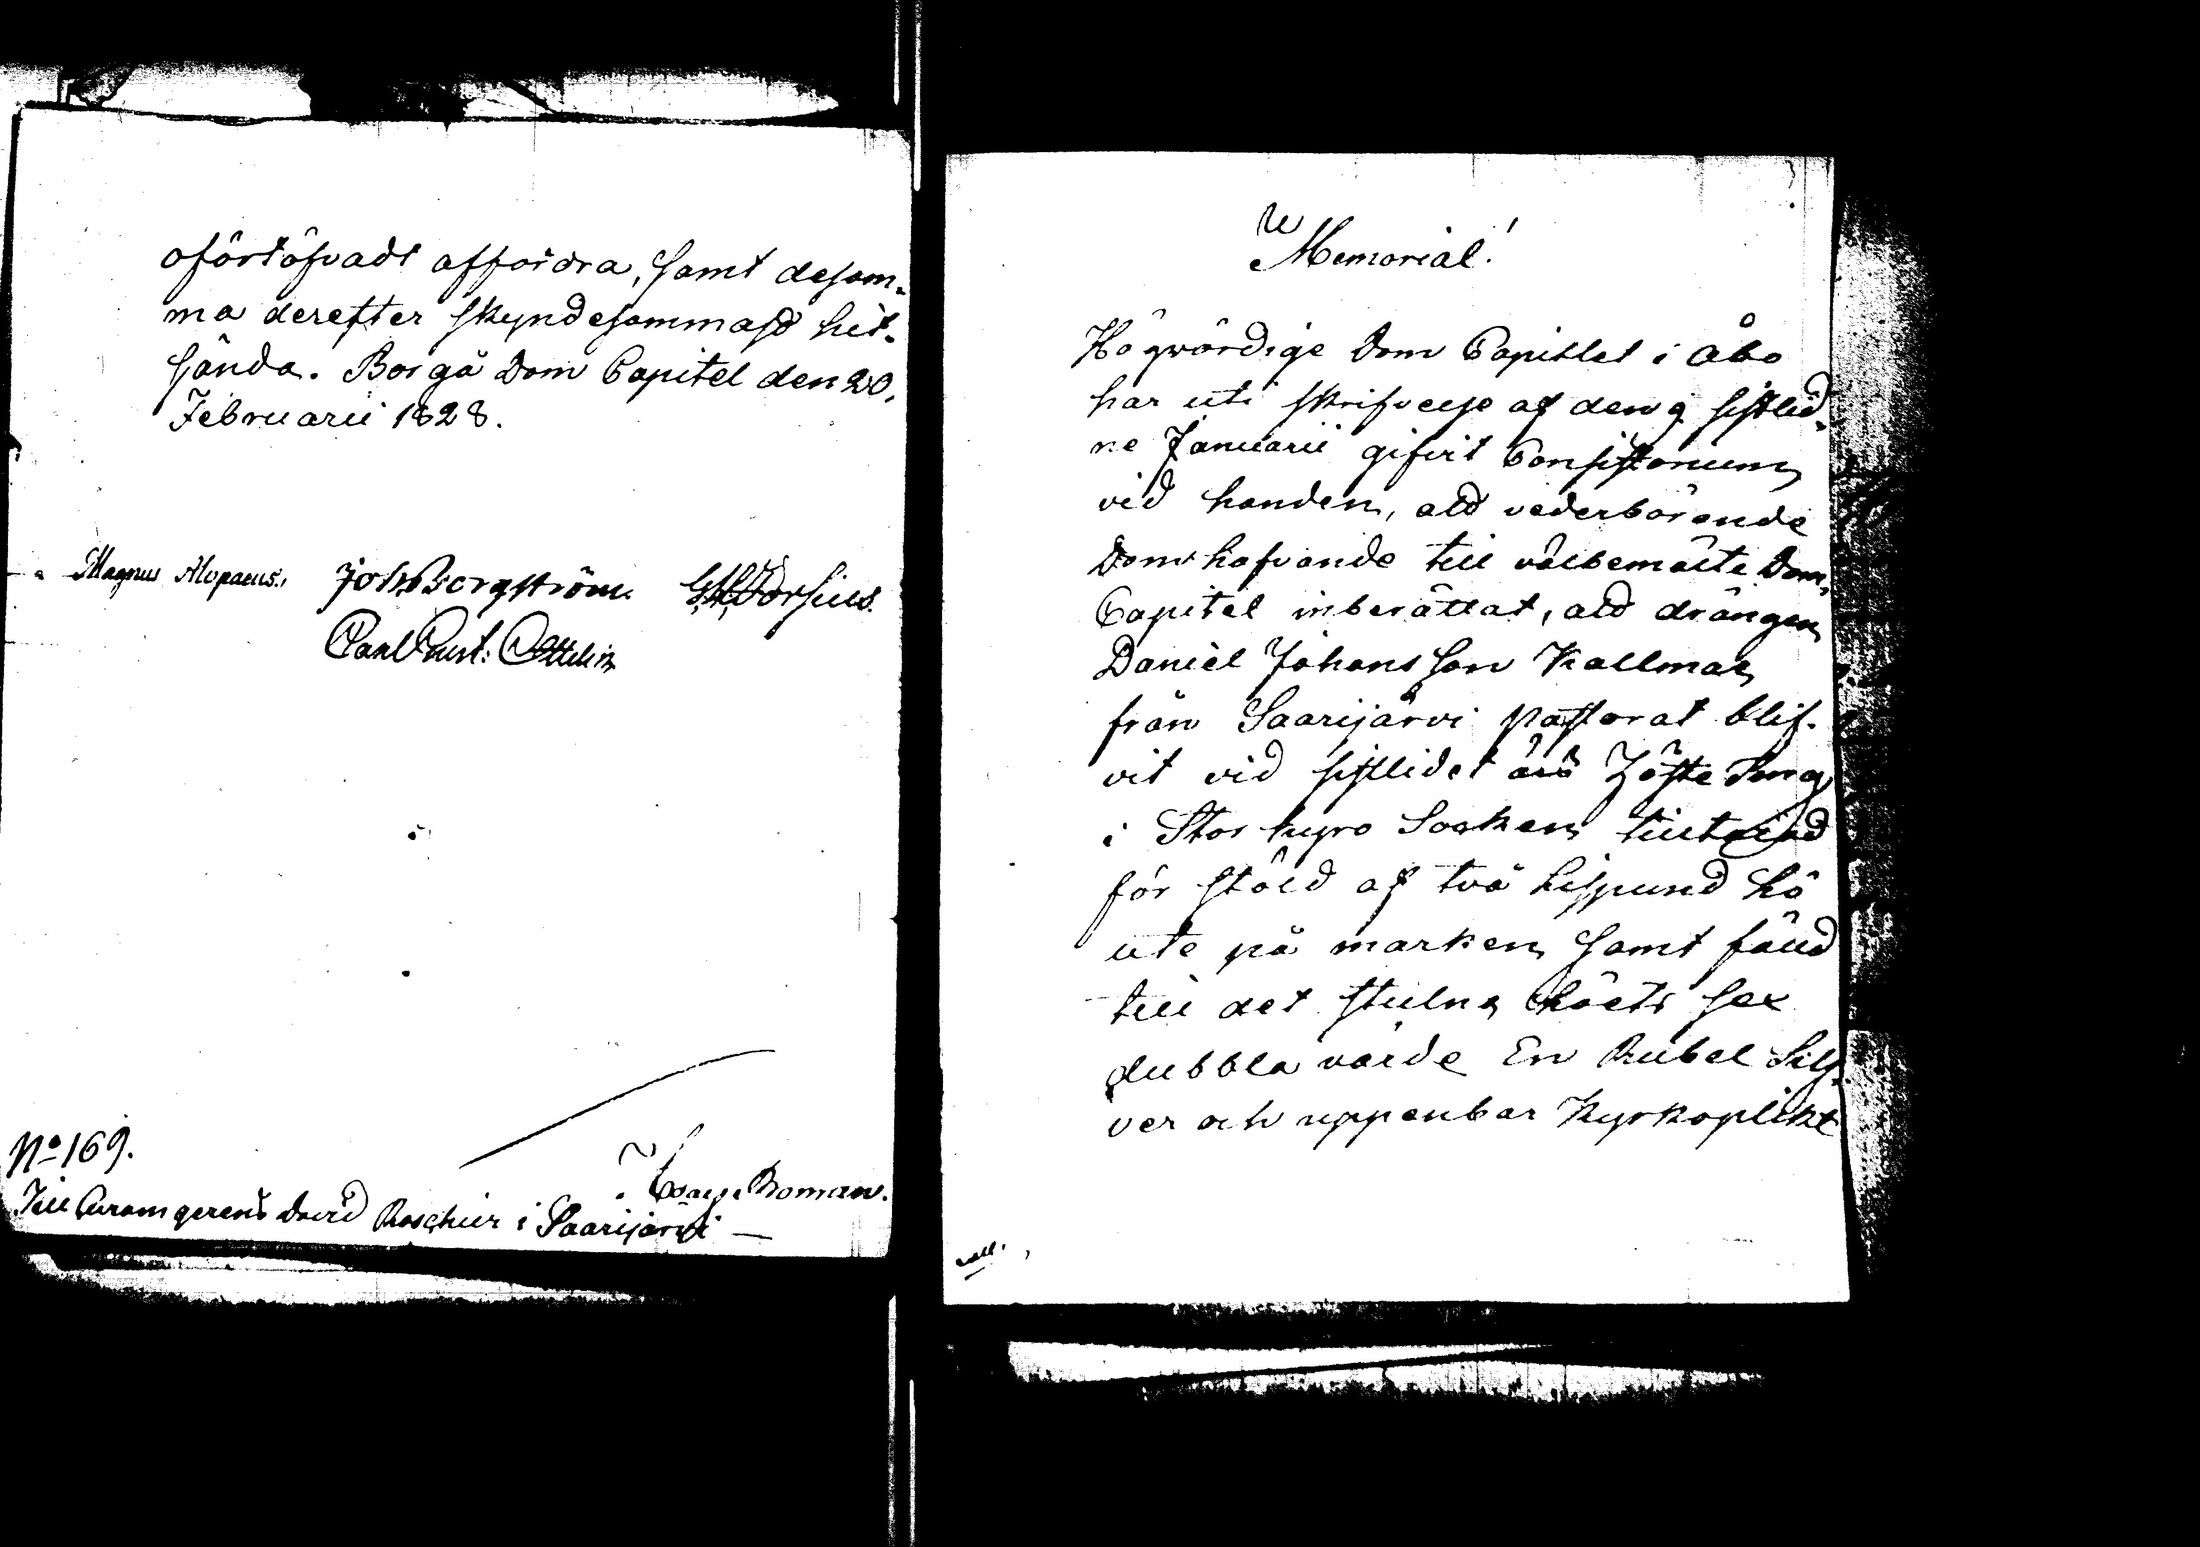 oförtöfvadt affordra, samt desam-
ma derefter skyndesammast hit-
sända. Borgå Dom Capitel den 20.
Februarii 1828.
Magnus Alopaeus. Joh. Bergström.
Carl Gust. Ottelin
No 169.
Roman.
Till Curam gerens David Roschier i Saarijärvi
Memorial!
Högwördige Dom Capitlet i Åbo
har uti skrifvelse af den 9 sistlid-
ne Januarii gifvit Consistorium
vid handen, att vederbörande
Domhafvande till välbemälte Dom
Capitel inberättat, att drängen
Daniel Johansson Kallmar
från Saarijärvi pastorat blif-
vit vid sistlidet års Höste Ting
i Storkyro Socken
för stöld af två lispund hö
ute på marken samt fäld
till det stulna höets sex
dubbla värde En Rubel Silf-
ver och uppenbar Kyrkoplikt